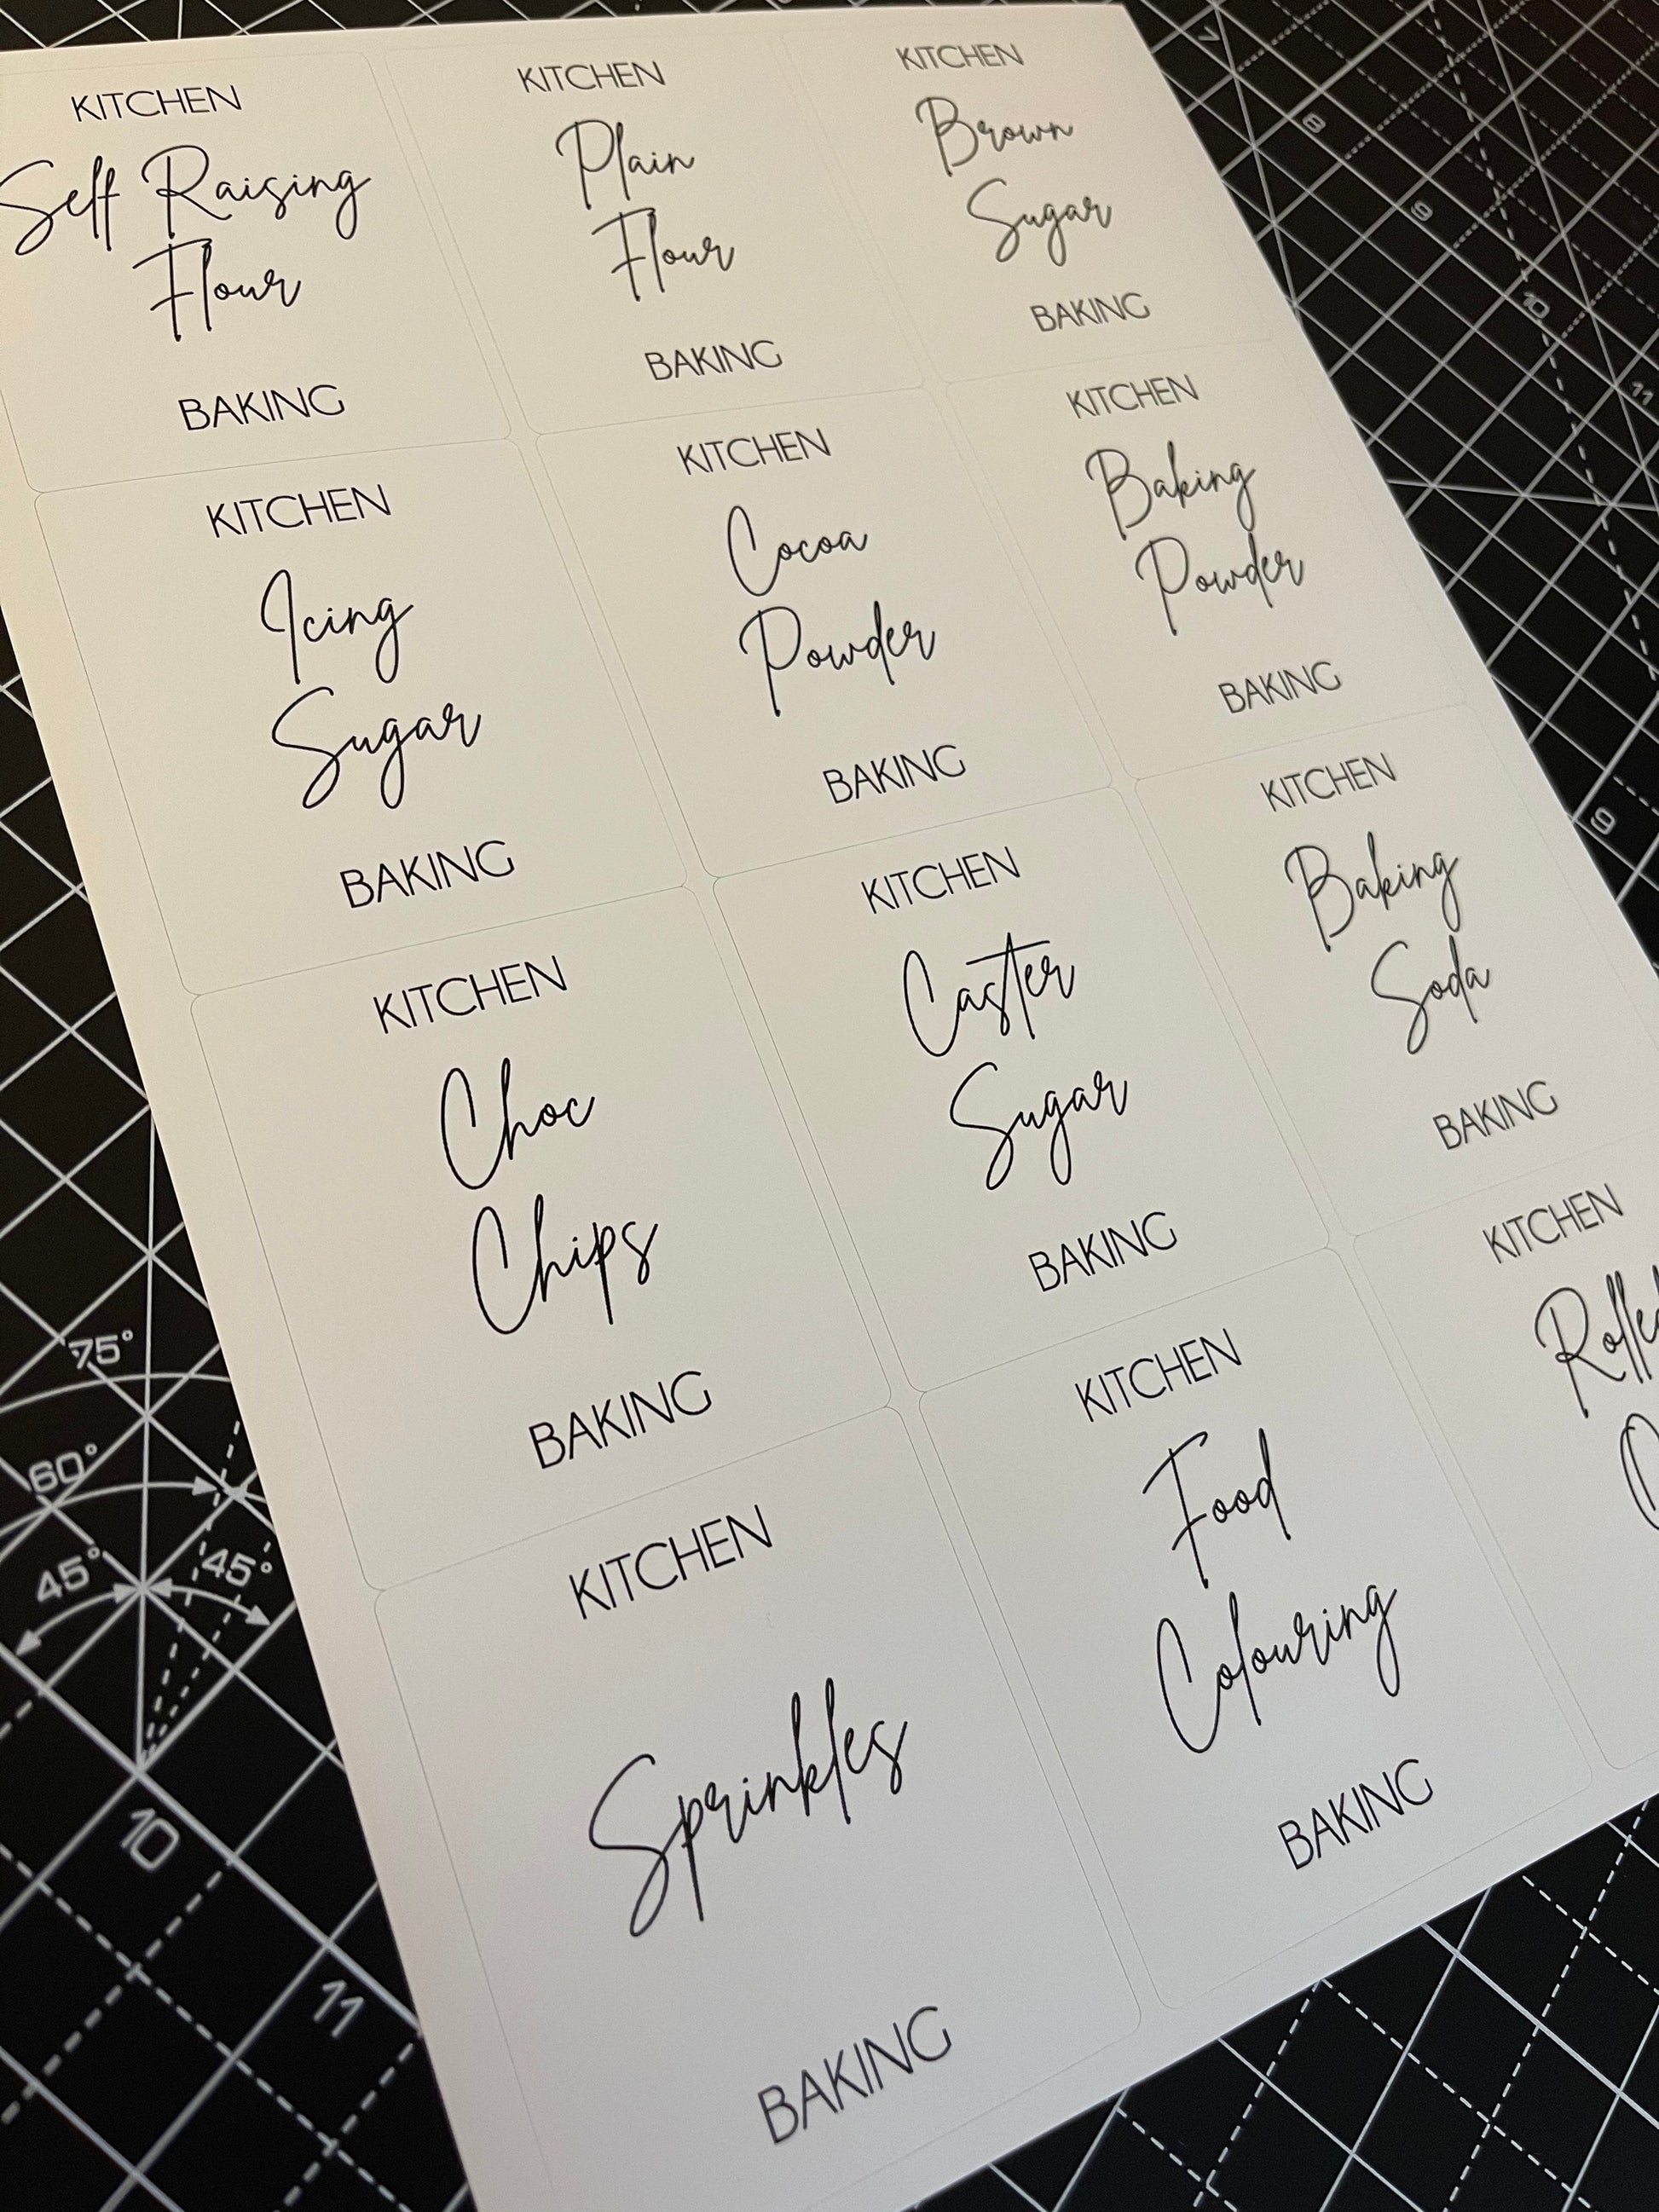 KITCHEN
Self Raising
Flour
BAKING
KITCHEN
Plain
Flour
BAKING
KITCHEN
Brown
Sugar
BAKING
KITCHEN
Icing
Sugar
BAKING
KITCHEN
Cocoa
Powder
BAKING
KITCHEN
Baking
Powder
BAKING
KITCHEN
Choc
Chips
BAKING
KITCHEN
Caster
Sugar
BAKING
KITCHEN
Baking
Soda
BAKING
KITCHEN
Sprinkles
BAKING
KITCHEN
Food
Colouring
BAKING
KITCHEN
7
8
9
10
11
9
75°
60°
45° 45°
10
11